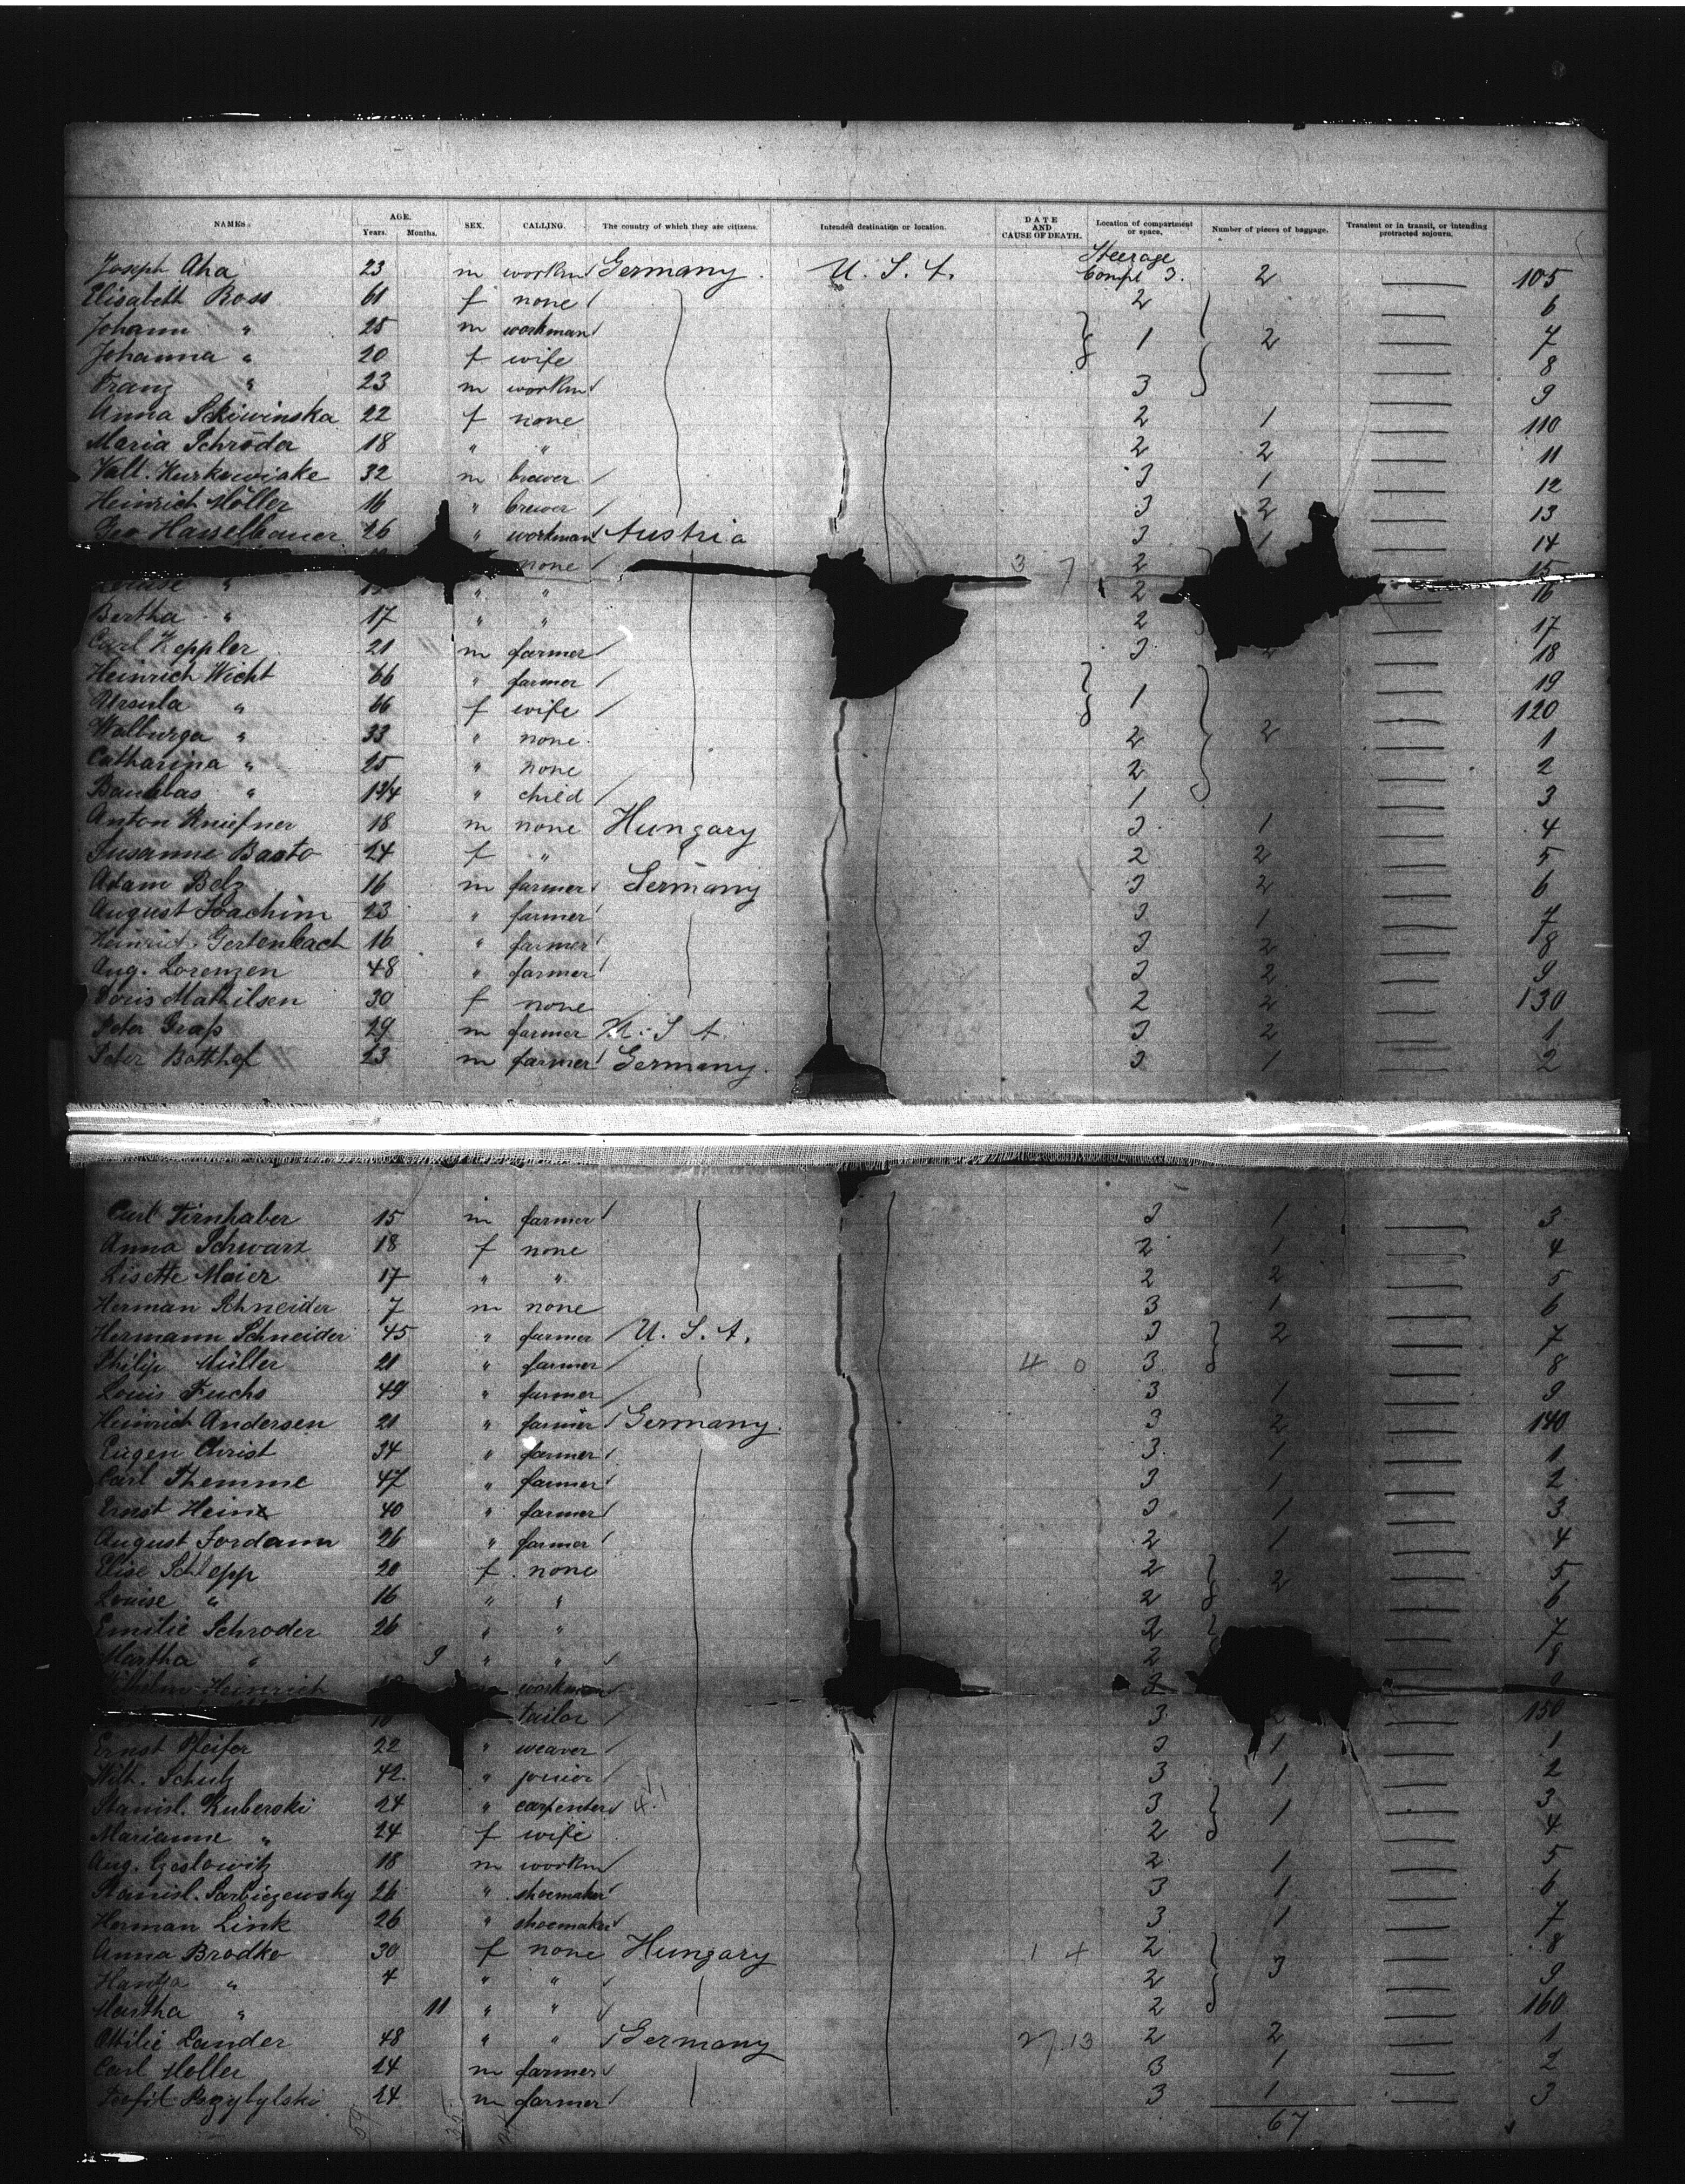 NAMES. AGE. SEX. CALLING. The country of which they are citizens. Intended destination or location. DATE AND CAUSE OF DEATH. Location of compartment or space. Number of pieces of baggage. Transient or in transit, or intending protracted sojourn.
Years. Months.
Steerage
Joseph Aha 23 m workm Germany. U. S. A. Compt 3. 2 — 105
Elisabeth Ross 61 f none 2 — 6
Johann " 25 m workman 1 2 — 7
Johanna " 20 f wife — 8
Franz " 23 m workm 3 — 9
Anna Skiwinska 22 f none 2 1 — 110
Maria Schröder 18 " " 2 2 — 11
32 m brewer 3 1 — 12
Heinrich Möller 16 " brewer 3 2 — 13
Geo Hasselbauer 26 " workman Austria 3 1 — 14
none 3 7 2 15
Louise " " " 2 — 16
Bertha " 17 " " 2 — 17
Carl Keppler 21 m farmer 3 — 18
Heinrich Wicht 66 " farmer 1 — 19
Ursula " 66 f wife — 120
Walburga " 33 " none 2 2 — 1
Catharina " 25 " none 2 — 2
" " child 1 — 3
Anton 18 m none Hungary 3 1 — 4
Susanne Basto 24 f " 2 2 — 5
Adam Belz 16 m farmer Germany 3 2 — 6
August Joachim 23 " farmer 3 1 — 7
Heinrich Gertenbach 16 " farmer 3 2 — 8
Aug. Lorenzen 48 " farmer 3 2 — 9
Doris Mathilsen 30 f none 2 2 — 130
Peter 29 m farmer U. S. A. 3 2 — 1
Peter Botthof 23 m farmer Germany. 3 1 — 2
Carl Firnhaber 15 m farmer 3 1 — 3
Anna Schwarz 18 f none 2 1 — 4
Lisette Maier 17 " " 2 2 — 5
Herman Schneider 7 m none 3 1 — 6
Hermann Schneider 45 " farmer U. S. A. 3 2 — 7
Philip Müller 21 " farmer 4 0 3 — 8
Louis Fuchs 49 " farmer 3 1 — 9
Heinrich Andersen 21 " farmer Germany. 3 2 — 140
Eugen Christ 34 " farmer 3 1 — 1
Carl Themme 47 " farmer 3 1 — 2
Ernst Heinz 40 " farmer 3 1 — 3
August Jordann 26 " farmer 2 1 — 4
Elise Schlepp 20 f none 2 2 — 5
Louise " 16 " " 2 — 6
Emilie Schroder 26 " " 2 — 7
Martha " 9 " " 2 — 8
Wilhelm Heinrich workman 3
tailor 3 — 150
Ernst Pfeifer 22 " weaver 3 1 — 1
Wilh. Schulz 42 " 3 1 — 2
Stanisl. Kuberski 24 " carpenter 3 1 — 3
Marianne " 24 f wife 2 — 4
Aug. Czeslowitz 18 m workm 2 1 — 5
Stanisl. Sarbiezewsky 26 " shoemaker 3 1 — 6
Herman Link 26 " shoemaker 3 1 — 7
Anna Brodko 30 f none Hungary 1 4 2 3 — 8
" 4 " " 2 — 9
Martha " 11 " " 2 — 160
Ottilie Lander 48 " " Germany 2 13 2 2 — 1
Carl Moller 24 m farmer 3 1 — 2
Teofil Przybylski 24 m farmer 3 1 — 3
67